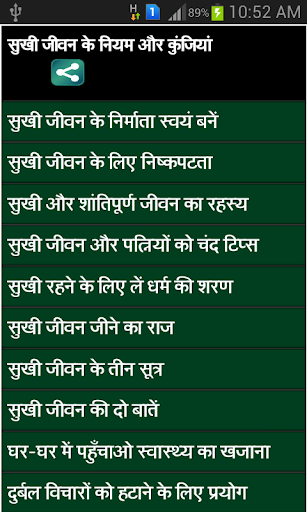 H 1 89% 10:52 AM
सुखी जीवन के नियम और कुंजियां
सुखी जीवन के निर्माता स्वयं बनें
सुखी जीवन के लिए निष्कपटता
सुखी और शांतिपूर्ण जीवन का रहस्य
सुखी जीवन और पत्नियों को चंद टिप्स
सुखी रहने के लिए लें धर्म की शरण
सुखी जीवन जीने का राज
सुखी जीवन के तीन सूत्र
सुखी जीवन की दो बातें
घर-घर में पहुँचाओ स्वास्थ्य का खजाना
दुर्बल विचारों को हटाने के लिए प्रयोग